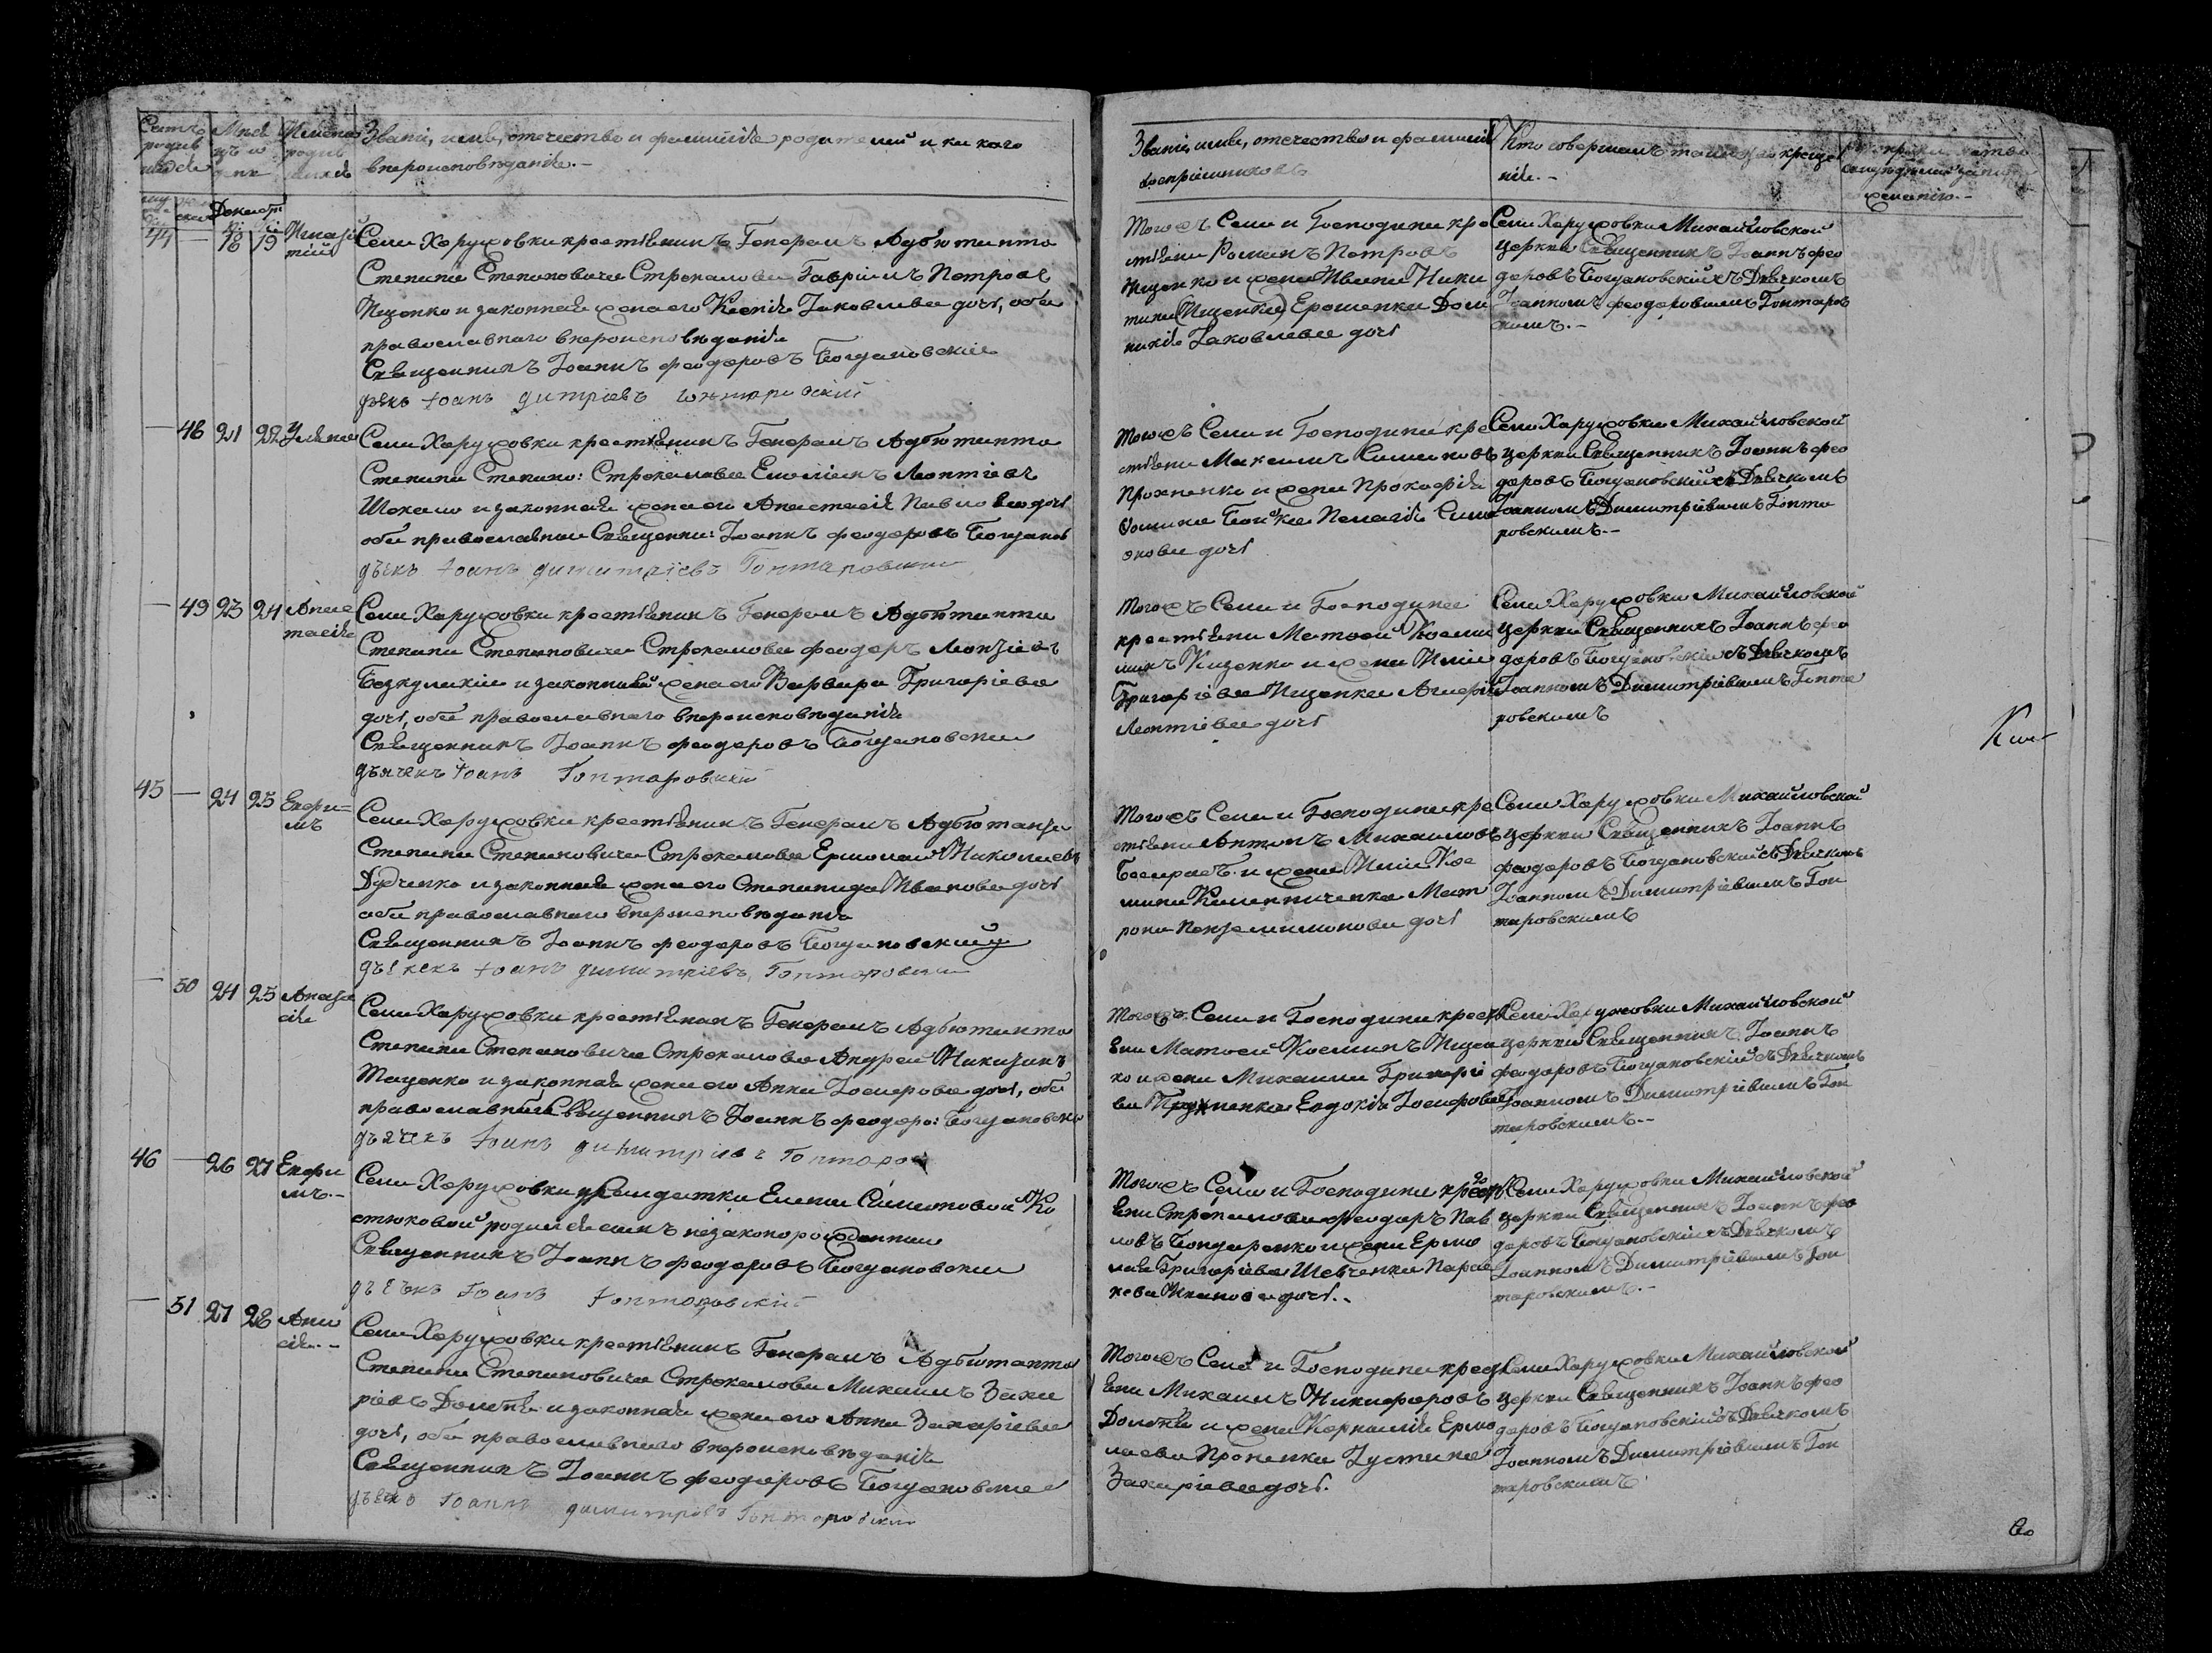 Счетъ родив шихся
Мѣся цъ и день
Имена родив шихся
Званіе, имя, отечество и фамилія родителей и какого
вѣроисповѣданія.-
Званіе, имя, отечество и фамилія
воспріемниковъ
Кто совершалъ таинство креще
нія.-
Декабр
44 — 18 19 Игна
тій
Села Харужовки крестянинъ Генералъ Адъютанта
Степана Степановича Стрекалова Гавріилъ Петровъ
Ищенко и законная жена его Ксенія Іаковлева дочь, оба
православнаго вѣроисповѣданія
Священникъ Іоаннъ Феодоровъ Богдановскій
дячекъ Іоанъ Дитріевъ Гонтаровскій
Тогожъ Села и Господина кре
стяни Романъ Петровъ
Ищенко и жена Ивана Ники
тина (Ищенка) Ерошенка Дом
никія Іаковлева дочь
Села Харужовки Михайловской
церкви Священникъ Іоаннъ Фео
доровъ Богдановскій съ Дячкомъ
Іоанномъ Феодоровымъ Гонтаров
скимъ.-
— 48 21 22 Уляна
Села Харужовки крестянинъ Генералъ Адъютанта
Степана Степано: Стрекалова Емеліанъ Леонтіевъ
Шекало и законная жена его Анастасія Павлова дочь
оба православнаи Священни: Іоаннъ Феодоровъ Богданов
дячекъ Іоанъ Димитріевъ Гонтаровскій
Тогожъ Села и Господина кре
стяни Максимъ Симоновъ
Прохненко и жена Прокофія
Пелагія Сим
онова дочь
Села Харужовки Михайловской
церкви Священникъ Іоаннъ Фео
доровъ Богдановскій съ Дячкомъ
Іоанномъ Димитріевымъ Гонта
ровскимъ.-
— 49 23 24 Анас
тасія
Села Харужовки крестянинъ Генералъ Адъютанта
Степана Степановича Стрекалова Феодоръ Леонтіевъ
и законная жена его Варвара Григоріева
дочь, оба православнаго вѣроисповѣданія
Священникъ Іоаннъ Феодоровъ Богдановскій
дячекъ Іоанъ Гонтаровскій
Тогожъ Села и Господина
крестяни Матвей Косми
нъ Ищенко и жена Иліи
Григоріева Ищенка
Леонтіева дочь
Села Харужовки Михайловской
церкви Священникъ Іоаннъ Фео
доровъ Богдановскій съ Дячкомъ
Іоанномъ Димитріевымъ Гонта
ровскимъ
45 — 24 25 Ефи=
мъ
Села Харужовки крестянинъ Генералъ Адъютанта
Степана Степановича Стрекалова Ермолай Николаевъ
Дудченко и законная жена его Степанида Иванова дочь
оба православнаго вѣроисповѣданія
Священникъ Іоаннъ Феодоровъ Богдановскій
дячекъ Іоанъ Димитріевъ Гонтаровскій
Тогожъ Села и Господина кре
стяни Антонъ Михаиловъ
и жена Иліи Кос
мина Мат
рона Пантелимонова дочь
Села Харужовки Михайловской
церкви Священникъ Іоаннъ
Феодоровъ Богдановскій съ Дячкомъ
Іоанномъ Димитріевымъ Гон
таровскимъ
— 50 24 25 Анаста
сія
Села Харужовки крестянинъ Генералъ Адъютанта
Степана Степановича Стрекалова Андрей Никитинъ
Тащенко и законная жена его Анна Іосифова дочь, оба
православныя Священникъ Іоаннъ Феодоро: Богдановски
дячекъ Іоанъ Димитріевъ Гонтаров
Тогожъ Села и Господина крест
яни Матвей Косминъ Ищен
ко и жена Михаила Григорі
ева Евдокія Іосифова
Села Харужовки Михайловской
церкви Священникъ Іоаннъ
Феодоровъ Богдановскій съ Дячкомъ
Іоанномъ Димитріевымъ Гон
таровскимъ.-
46 — 26 27 Ефи
мъ.-
Села Харужовки у Солдатки Елены Симоновой Ко
стюковой родился сынъ незаконорожденный
Священникъ Іоаннъ Феодоровъ Богдановскій
дячекъ Іоанъ Гонтаровскій
Тогожъ Села и Господина крест
яни Стрекалова Феодоръ Пав
ловъ Бондаренко и жена Ермо
лая Григоріева Шевченка Парас
кева Иванова дочь.-
Села Харужовки Михайловской
церкви Священникъ Іоаннъ Фео
доровъ Богдановскій съ Дячкомъ
Іоанномъ Димитріевымъ Гон
таровскимъ.-
— 51 27 28 Ани
сія.-
Села Харужовки крестянинъ Генералъ Адъютанта
Степана Степановича Стрекалова Михаилъ Заха
ріевъ и законная жена его Анна Захаріева
дочь, оба православнаго вѣроисповѣданія
Священникъ Іоаннъ Феодоровъ Богдановскій
дячекъ Іоаннъ Димитріевъ Гонтаровскій
Тогожъ Села и Господина крест
яни Михаилъ Никифоровъ
и жена Корнилія Ермо
лаева Проненка Іустина
Захаріева дочь.
Села Харужовки Михайловской
церкви Священникъ Іоаннъ Фео
доровъ Богдановскій съ Дячкомъ
Іоанномъ Димитріевымъ Гон
таровскимъ